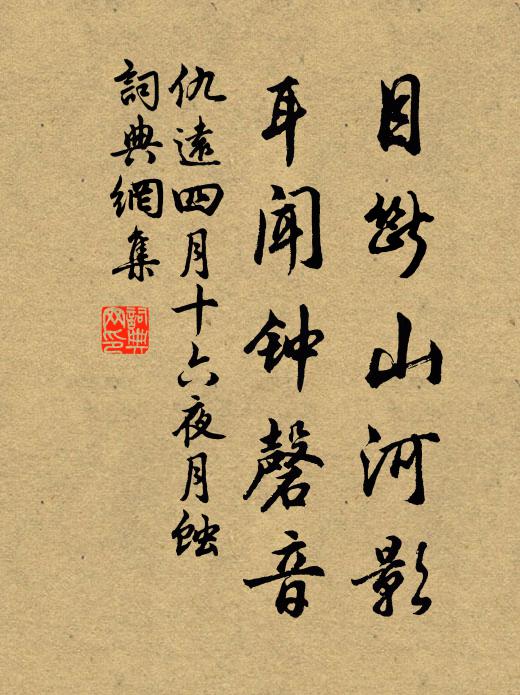 目断山河影
耳闻钟磬音
仇遠四月十六夜月蚀
詞典網集
詞典网印